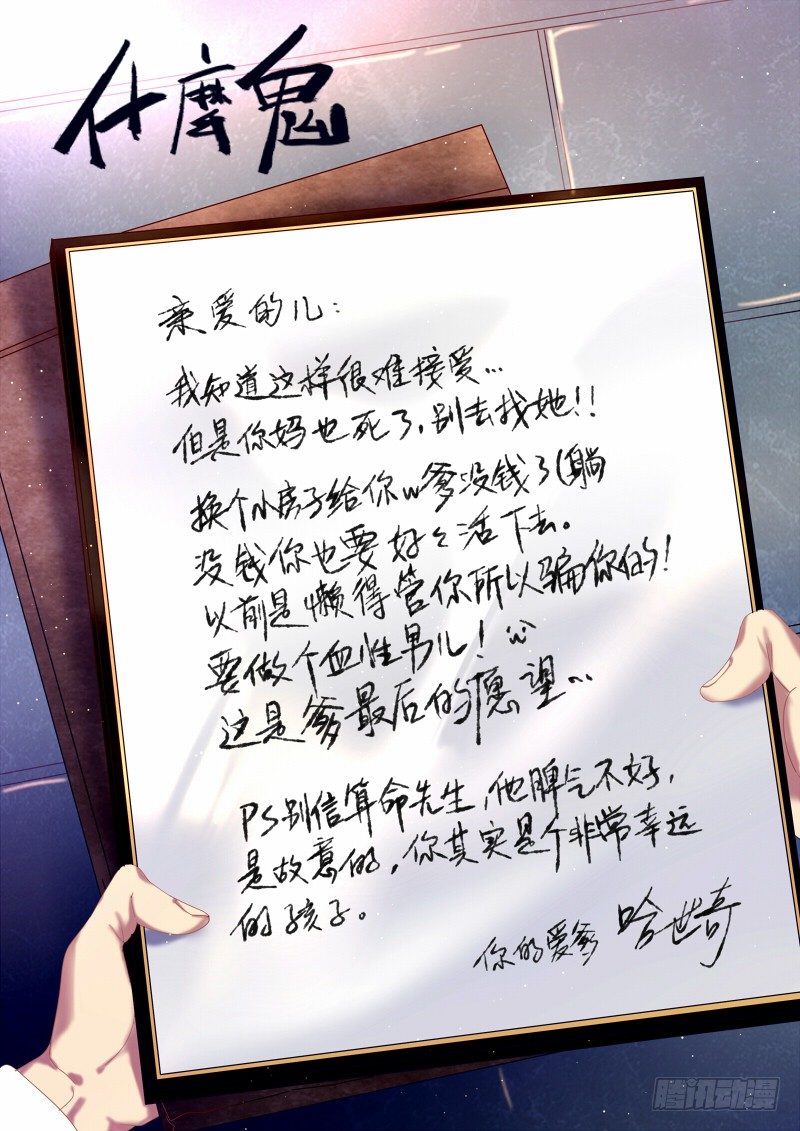 什麼鬼
亲爱的儿：
我知道这样很难接爱…
但是你妈也死了,别去找她!!
换个小房子给你w爹没钱了(躺
没钱你也要好々活下去。
以前是懒得管你所以骗你的!
要做个血性男儿!
这是爹最后的愿望…
PS别信算命先生,他脾气不好,
是故意的,你其实是个非常幸远
的孩子。
你的爱爹 哈世奇
腾讯动漫